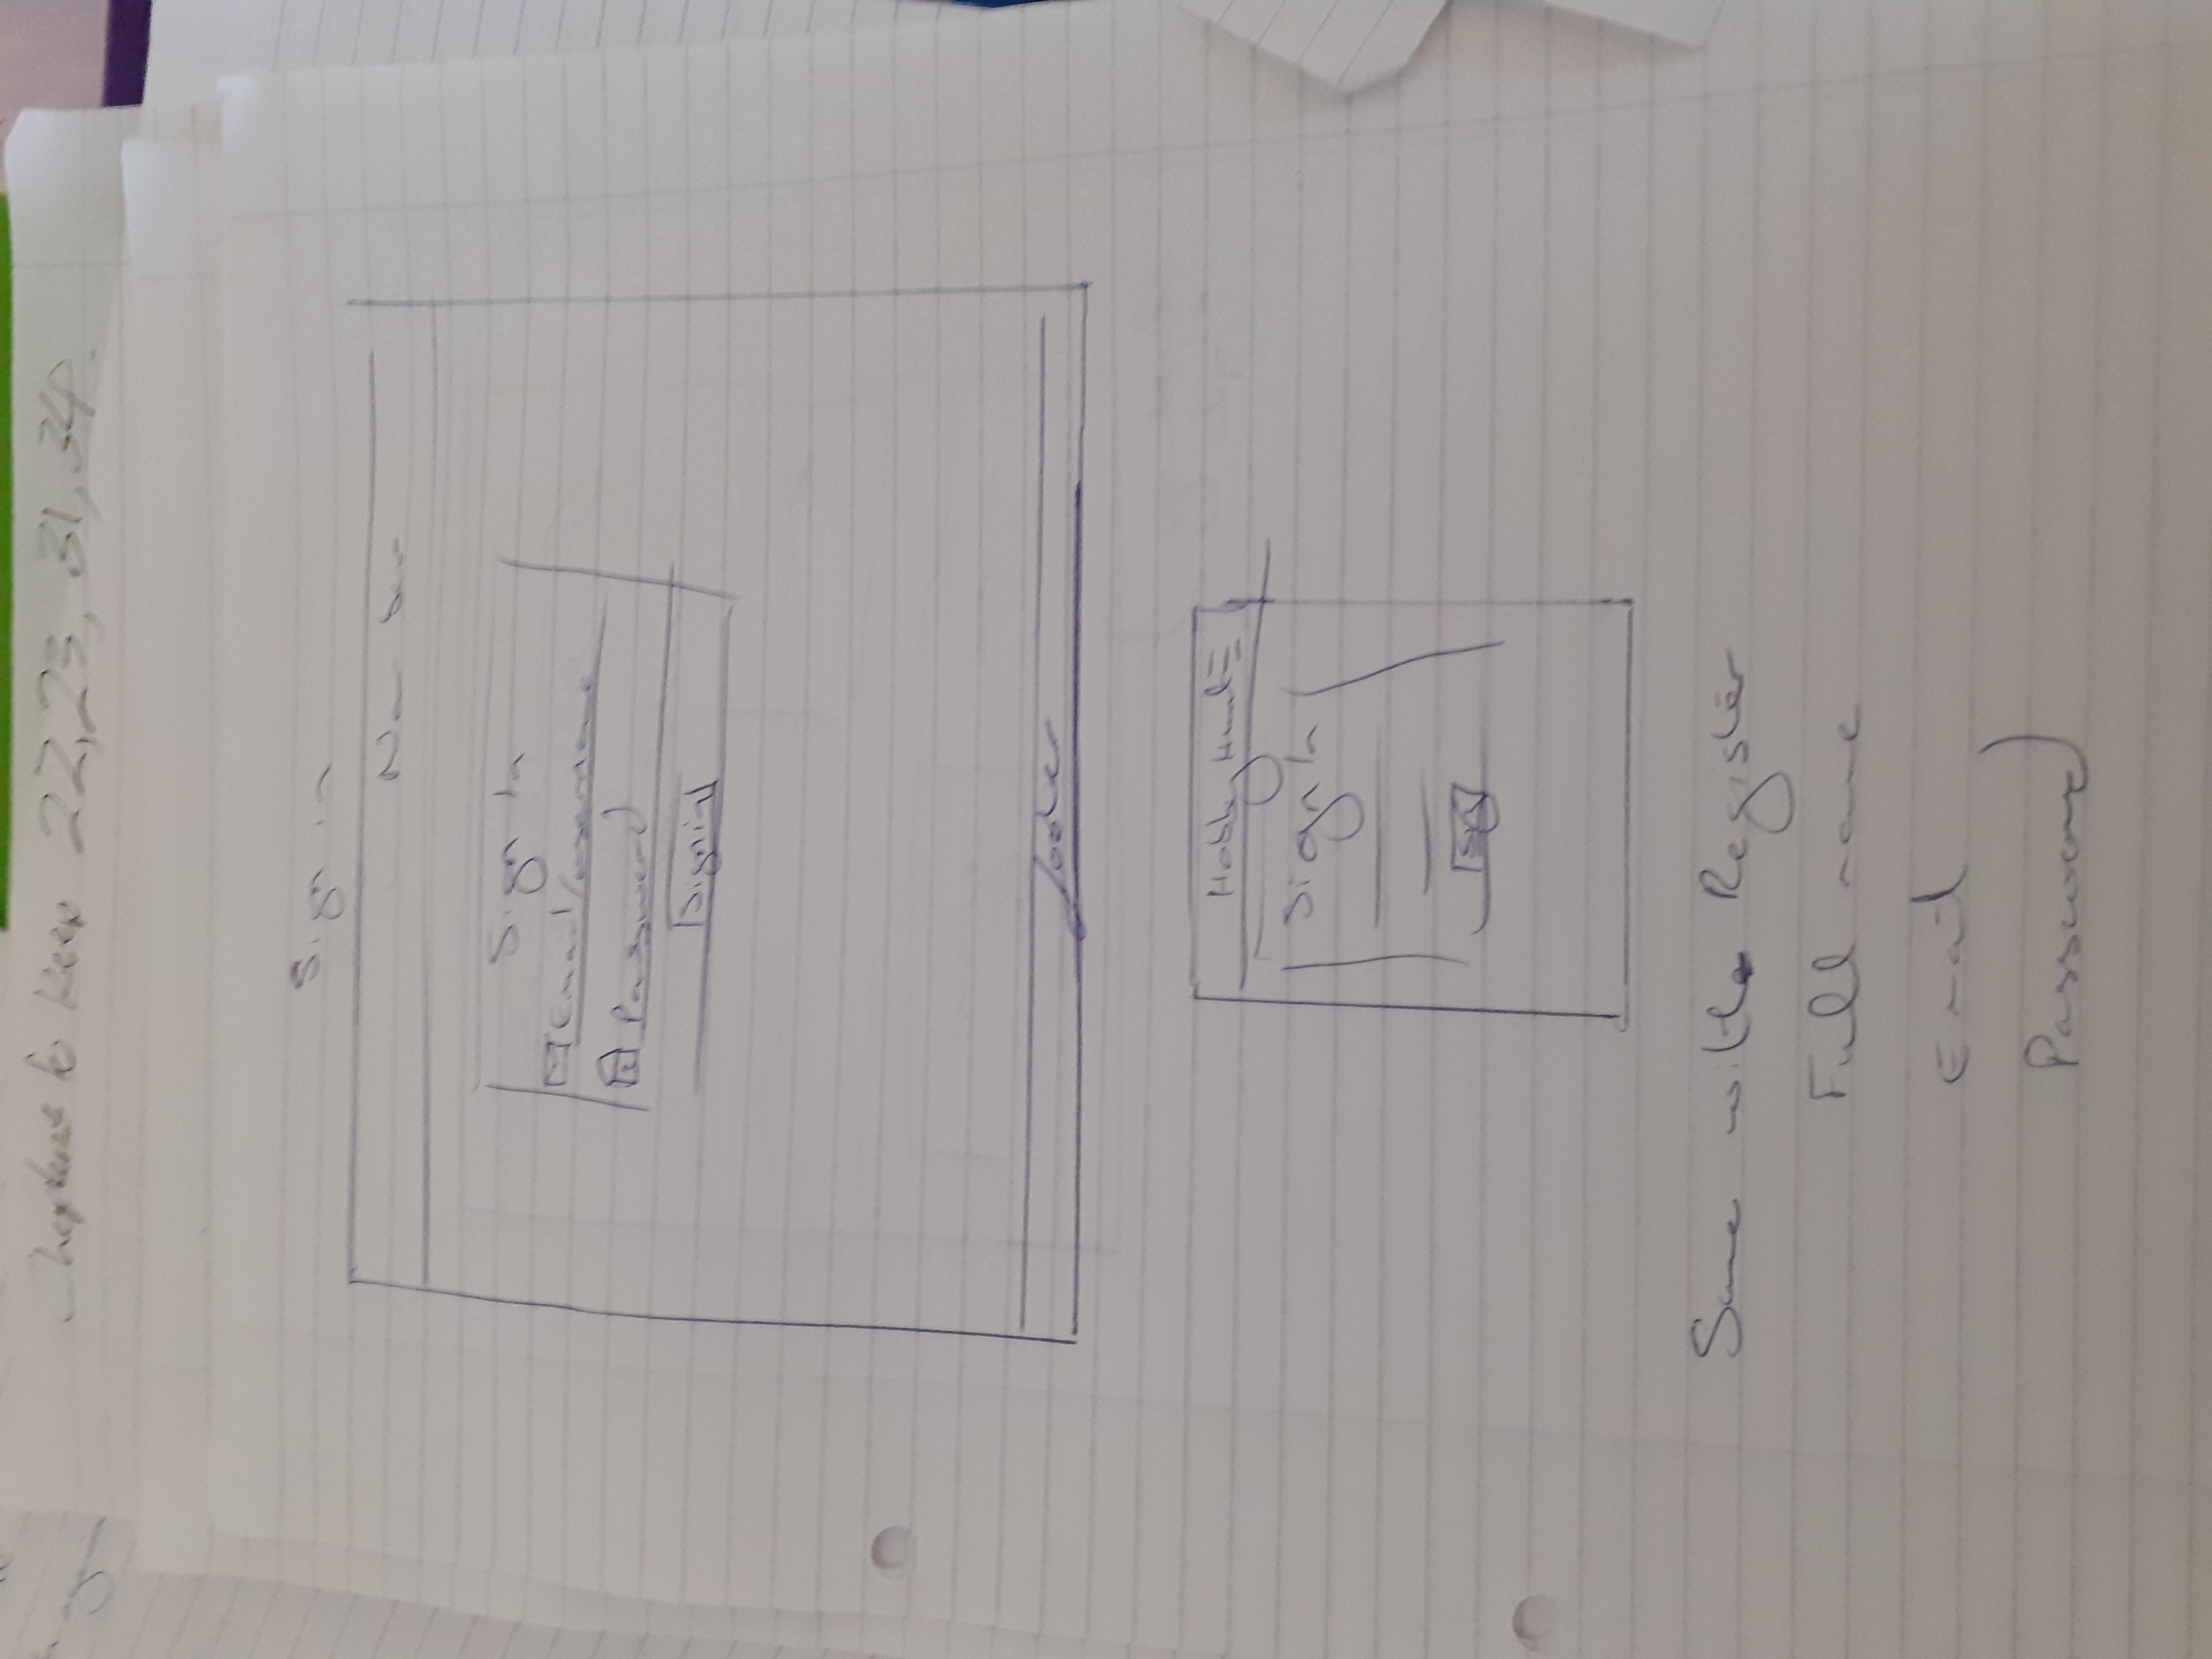 Chapters to keep 22,23, 31, 34.
Sign in
Nav bar
Sign In
Email/username
Password
Sign in
footer
Hobby Hunt
Sign In
Same with Register
Full name
Email
Password